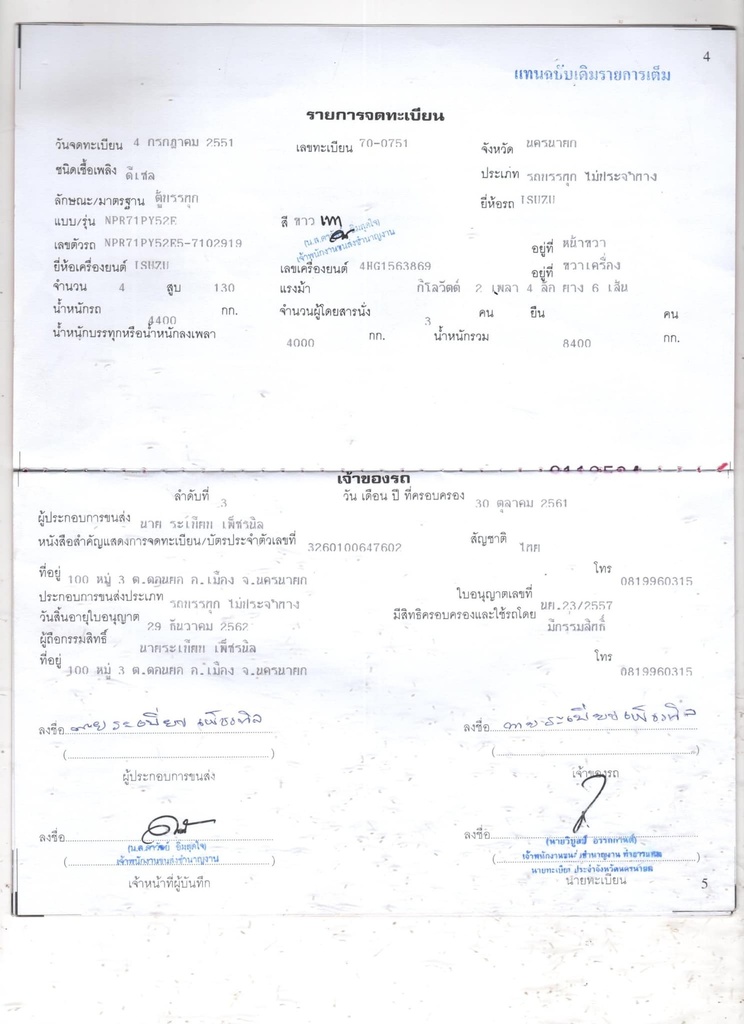 4
แทนฉบับเดิมรายการเต็ม
รายการจดทะเบียน
วันจดทะเบียน 4 กรกฎาคม 2551 เลขทะเบียน 70-0751 จังหวัด นครนายก
ชนิดเชื้อเพลิง ดีเซล ประเภท รถบรรทุก ไม่ประจำทาง
ลักษณะ/มาตรฐาน ตู้บรรทุก ยี่ห้อรถ ISUZU
แบบ/รุ่น NPR71PY52E สี ขาว เทา
เจ้าพนักงานขนส่งชำนาญงาน
เลขตัวรถ NPR71PY52E5-7102919 อยู่ที่ หน้าขวา
ยี่ห้อเครื่องยนต์ ISUZU เลขเครื่องยนต์ 4HG1563869 อยู่ที่ ขวาเครื่อง
จำนวน 4 สูบ 130 แรงม้า กิโลวัตต์ 2 เพลา 4 ล้อ ยาง 6 เส้น
น้ำหนักรถ 4400 กก. จำนวนผู้โดยสารนั่ง 3 คน ยืน คน
น้ำหนักบรรทุกหรือน้ำหนักลงเพลา 4000 กก. น้ำหนักรวม 8400 กก.
เจ้าของรถ
ลำดับที่ 3 วัน เดือน ปี ที่ครอบครอง 30 ตุลาคม 2561
ผู้ประกอบการขนส่ง นาย ระเทียบ เพ็ชรนิล
หนังสือสำคัญแสดงการจดทะเบียน/บัตรประจำตัวเลขที่ 3260100647602 สัญชาติ ไทย
ที่อยู่ 100 หมู่ 3 ต.ดอนยอ อ.เมือง จ.นครนายก โทร 0819960315
ประกอบการขนส่งประเภท รถบรรทุก ไม่ประจำทาง ใบอนุญาตเลขที่ นย.23/2557
วันสิ้นอายุใบอนุญาต 29 ธันวาคม 2562 มีสิทธิครอบครองและใช้รถโดย มีกรรมสิทธิ์
ผู้ถือกรรมสิทธิ์ นายระเทียบ เพ็ชรนิล
ที่อยู่ 100 หมู่ 3 ต.ดอนยอ อ.เมือง จ.นครนายก โทร 0819960315
ลงชื่อ ลงชื่อ
(....................) (....................)
ผู้ประกอบการขนส่ง เจ้าของรถ
ลงชื่อ ลงชื่อ
เจ้าพนักงานขนส่งชำนาญงาน
นายทะเบียน ประจำจังหวัดนครนายก
เจ้าหน้าที่ผู้บันทึก นายทะเบียน
5